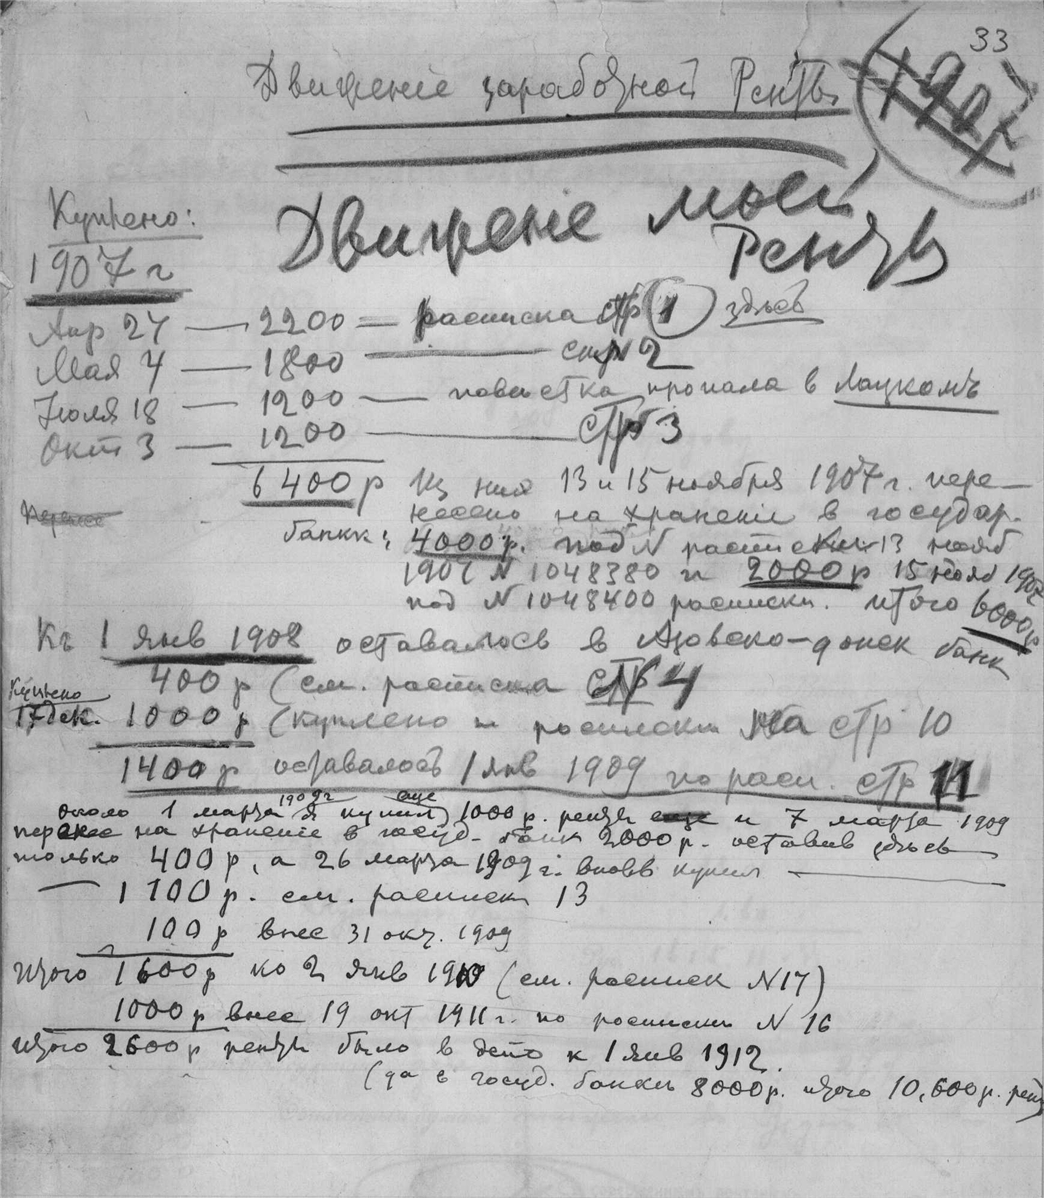 33
Движеніе заработной Ренты
1907
Движеніе моей
Ренты
Куплено:
1907 г
Апр 24 — 2200 — расписка стр 1 здѣсь
Мая 4 — 1800 — стр 2
Іюля 18 — 1200 — повестка пропала в Лацкомъ
Окт 3 — 1200 — стр 3
6400 р Из них 13 и 15 ноября 1907 г. пере-
несено на храненіе в государ.
банкк: 4000 р. под N расписки 13 нояб
1907 N 1048380 и 2000 р 15 нояб 1907
под N 1048400 расписки. итого 6000 р
Къ 1 янв 1908 оставалось в Азовско-донск банк
400 р (см. расписка стр 4
Куплено
17 дек. 1000 р (куплено и росписки на стр 10
1400 р оставалось 1 янв 1909 по расп. стр 11
около 1 марта 1909 г я купил еще 1000 р. ренты и 7 марта 1909
перенес на храненіе в госуд. банк 2000 р. оставив здѣсь
только 400 р, а 26 марта 1909 г. вновь купил
— 1100 р. см. расписк 13
100 р внес 31 окт. 1909
Итого 1600 р ко 2 янв 1910 (см. расписк N 17)
1000 р внес 19 окт 1911 г. по росписки N 16
Итого 2600 р ренты было в депо к 1 янв 1912.
(да в госуд. банкъ 8000 р. итого 10,600 р. рент